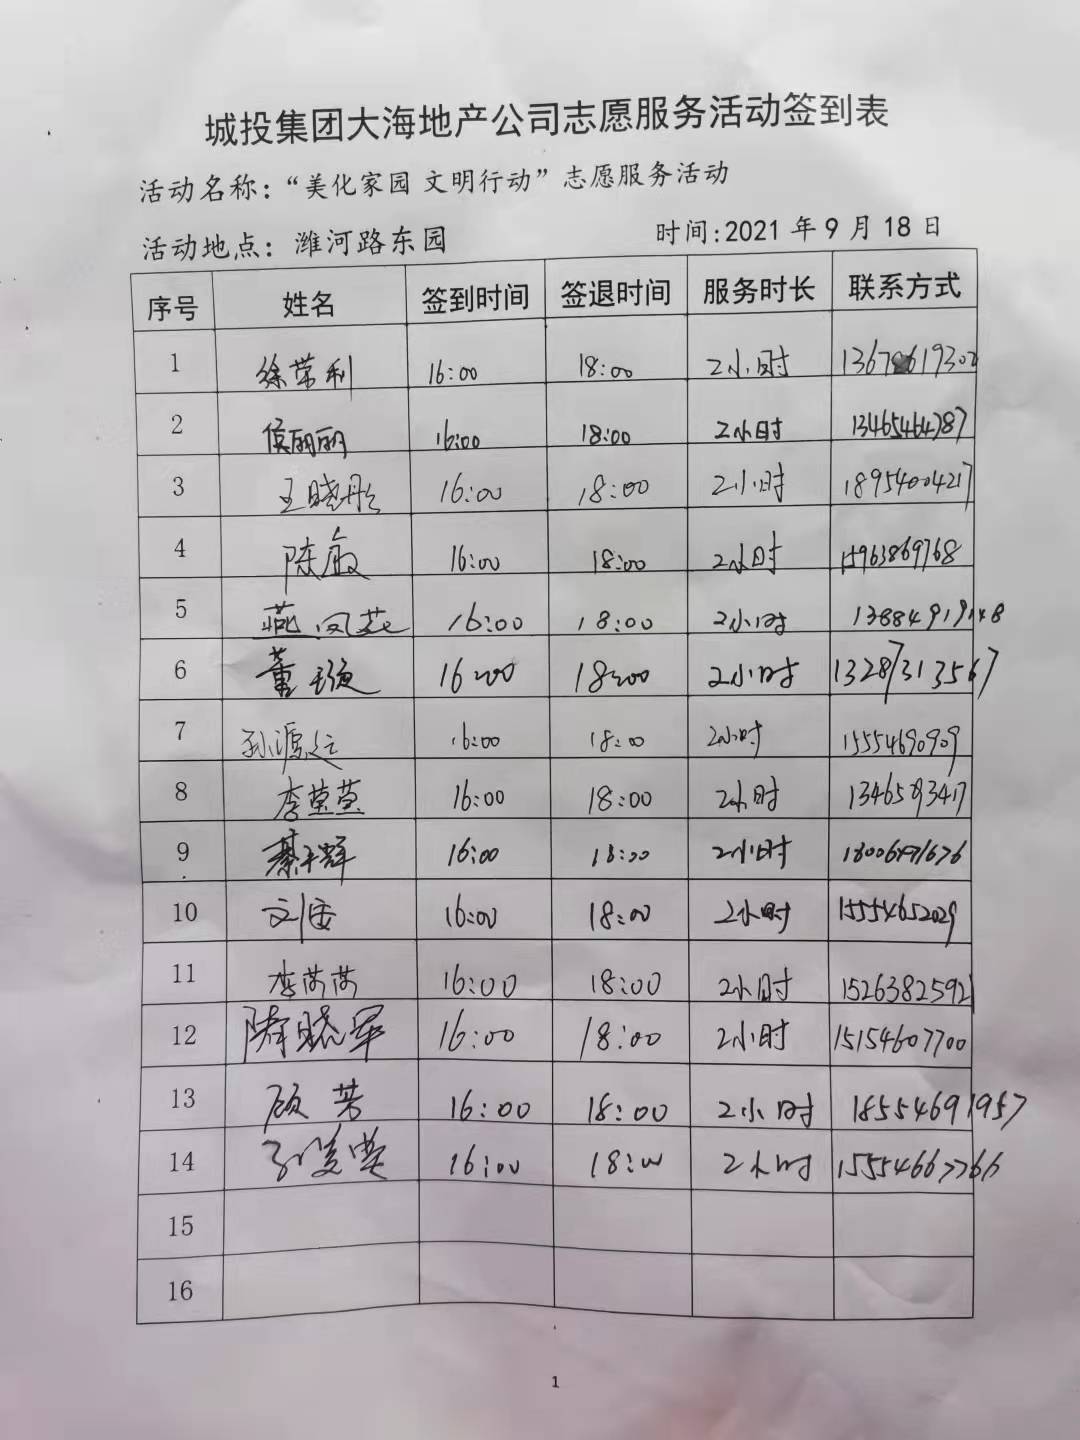 城投集团大海地产公司志愿服务活动签到表
活动名称：“美化家园 文明行动”志愿服务活动
活动地点：潍河路东园 时间:2021 年 9 月 18 日
序号 姓名 签到时间 签退时间 服务时长 联系方式
1 徐荣利 16:00 18:00 2小时
2 侯丽丽 16:00 18:00 2小时 13465464787
3 王晓彤 16:00 18:00 2小时 18954004217
4 陈敏 16:00 18:00 2小时 15963869768
5 燕凤花 16:00 18:00 2小时 13884919148
6 董璇 16:00 18:00 2小时 13287313567
7 16:00 18:00 2小时 15554690909
8 李莹莹 16:00 18:00 2小时
9 16:00 18:00 2小时
10 16:00 18:00 2小时 15554652029
11 李芮芮 16:00 18:00 2小时 15263825921
12 隋晓军 16:00 18:00 2小时 15154607700
13 顾芳 16:00 18:00 2小时 18554691957
14 16:00 18:00 2小时 15554667766
15
16
1